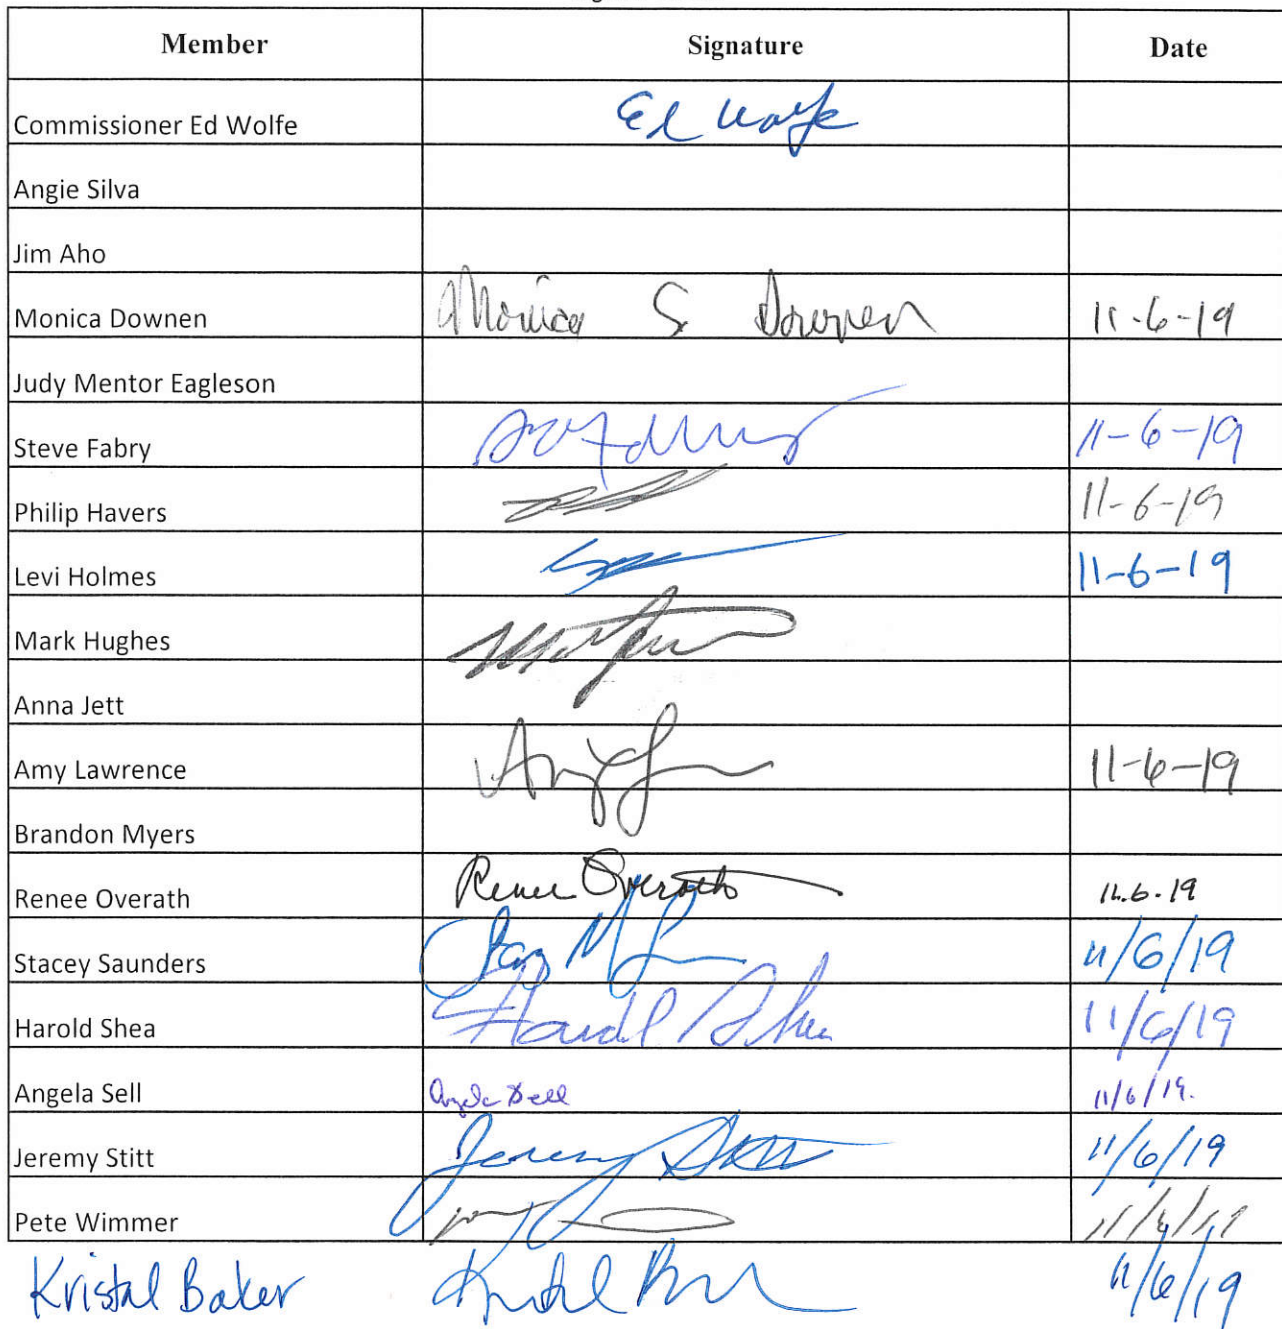 Member Signature Date
Commissioner Ed Wolfe Ed Wolfe
Angie Silva
Jim Aho
Monica Downen Monica S Downen 11-6-19
Judy Mentor Eagleson
Steve Fabry 11-6-19
Philip Havers 11-6-19
Levi Holmes 11-6-19
Mark Hughes
Anna Jett
Amy Lawrence 11-6-19
Brandon Myers
Renee Overath Renee Overath 11.6.19
Stacey Saunders 11/6/19
Harold Shea Harold Shea 11/6/19
Angela Sell Angela Sell 11/6/19.
Jeremy Stitt Jeremy Stitt 11/6/19
Pete Wimmer 11/6/19
Kristal Baker 11/6/19